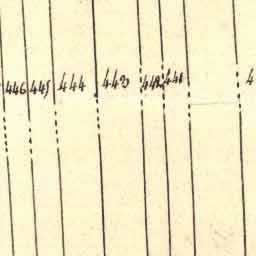 446 445 444 443 442 441 4